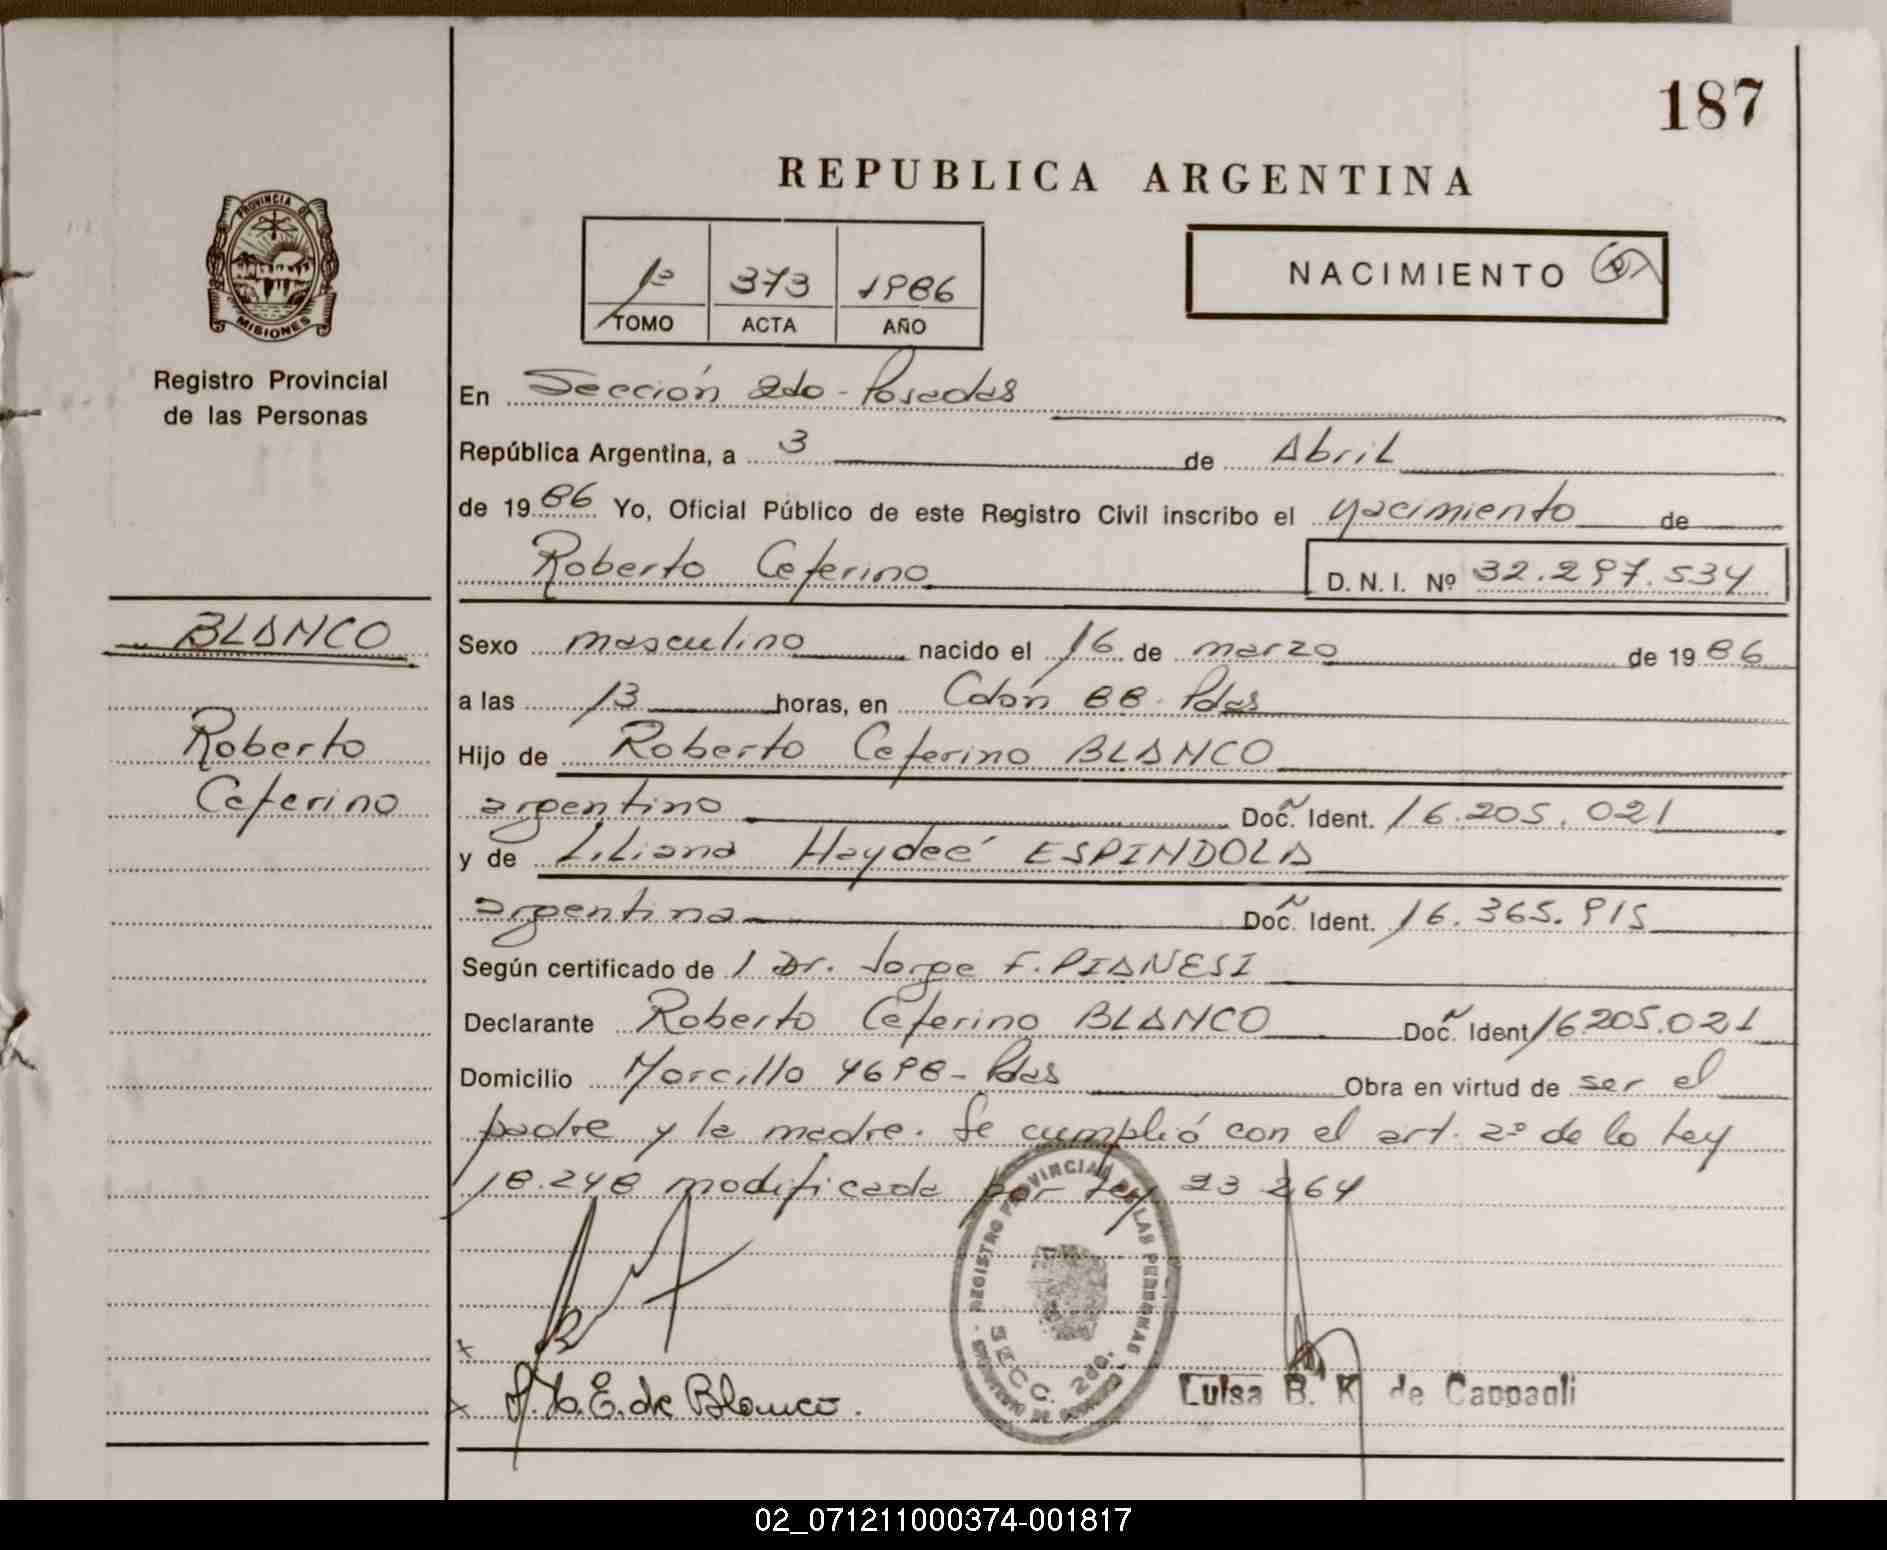 187
REPUBLICA ARGENTINA
PROVINCIA DE
MISIONES
Registro Provincial
de las Personas
1º 373 1986
TOMO ACTA AÑO
NACIMIENTO
En Sección 2do - Posadas
República Argentina, a 3 de Abril
de 1986 Yo, Oficial Público de este Registro Civil inscribo el nacimiento de
Roberto Ceferino D.N.I. Nº 32.297.534
BLANCO
Roberto
Ceferino
Sexo masculino nacido el 16 de marzo de 1986
a las 13 horas, en Colón 88 - Pdas
Hijo de Roberto Ceferino BLANCO
argentino Doc. Ident. 16.205.021
y de Liliana Haydeé ESPINDOLA
argentina Doc. Ident. 16.365.915
Según certificado de / Dr. Jorge F. PIANESI
Declarante Roberto Ceferino BLANCO Doc. Ident 16.205.021
Domicilio Morcillo 4698 - Pdas Obra en virtud de ser el
padre y la madre. Se cumplió con el art. 2º de la Ley
18.248 modificada por Ley 23 264
REGISTRO PROVINCIAL DE LAS PERSONAS
SECC. 2do.
x
x L. H. E. de Blanco.
Luisa B. K. de Cappagli
02_071211000374-001817